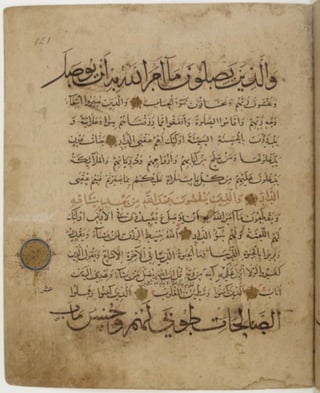 121
والذين يصلون ما أمر الله به أن يوصل
ويخشون ربهم ويخافون سوء الحساب والذين صبروا ابتغاء
وجه ربهم وأقاموا الصلوة وأنفقوا مما رزقناهم سرا وعلانية و
يدرؤن بالحسنة السيئة أولئك لهم عقبى الدار جنات عدن
يدخلونها ومن صلح من آبائهم وأزواجهم وذرياتهم والملائكة
يدخلون عليهم من كل باب سلام عليكم بما صبرتم فنعم عقبى
الدار والذين ينقضون عهد الله من بعد ميثاقه
ويقطعون ما أمر الله به أن يوصل ويفسدون في الأرض أولئك
لهم اللعنة ولهم سوء الدار الله يبسط الرزق لمن يشاء ويقدر
وفرحوا بالحيوة الدنيا وما الحيوة الدنيا في الآخرة إلا متاع ويقول الذين
كفروا لولا أنزل عليه آية من ربه قل إن الله يضل من يشاء ويهدي إليه من
أناب الذين آمنوا وتطمئن القلوب الذين آمنوا وعملوا
الصالحات طوبى لهم وحسن مآب